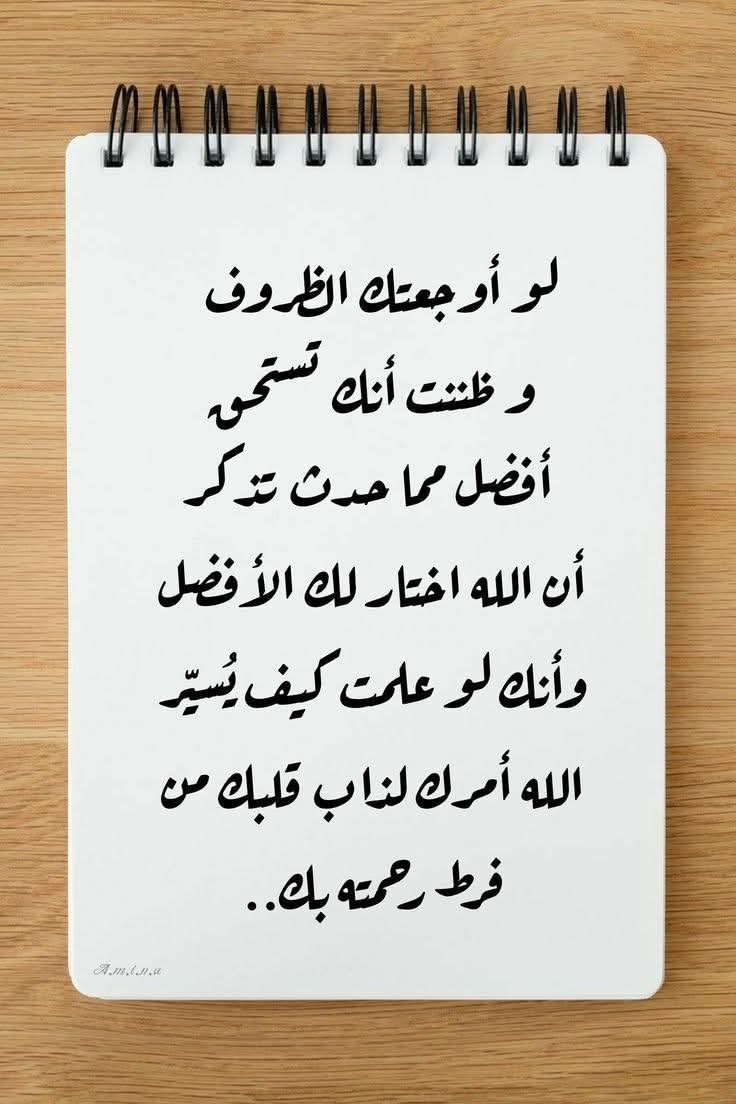 لو أوجعتك الظروف
و ظننت أنك تستحق
أفضل مما حدث تذكر
أن الله اختار لك الأفضل
وأنك لو علمت كيف يُسيّر
الله أمرك لذاب قلبك من
فرط رحمته بك..
Amina